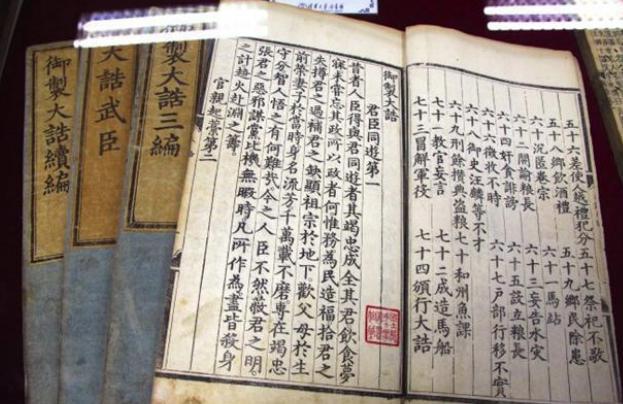 五十六差使人越禮犯分 五十七祭祀不敬
五十八鄉飲酒禮 五十九鄉民除患
六十沉匿卷宗 六十一馬站
六十二開諭粮長 六十三妄告水灾
六十四奸貪誹謗 六十五設立粮長
六十六徵收不時 六十七戶部行移不實
六十八御史汪麟等不才
六十九刑餘攢典盜粮 七十和州魚課
七十一教官妄言 七十二成造馬船
七十三冒解軍役 七十四頒行大誥
御製大誥
君臣同遊第一
昔者人臣得與君同遊者其竭忠成全其君飲食夢
寐未嘗忘其政所以政者何惟務為民造福拾君之
失撙君之過補君之缺顯祖宗於地下歡父母於生
前榮妻子於當時身名流芳千萬載不磨專在竭忠
守分智人悟之有何難哉今之人臣不然蔽君之明
張君之惡邪謀黨比機無暇時凡所作為盡皆殺身
之計趨火赴淵之籌
官親起藁第二
大誥三編
大誥武臣
御製大誥續編